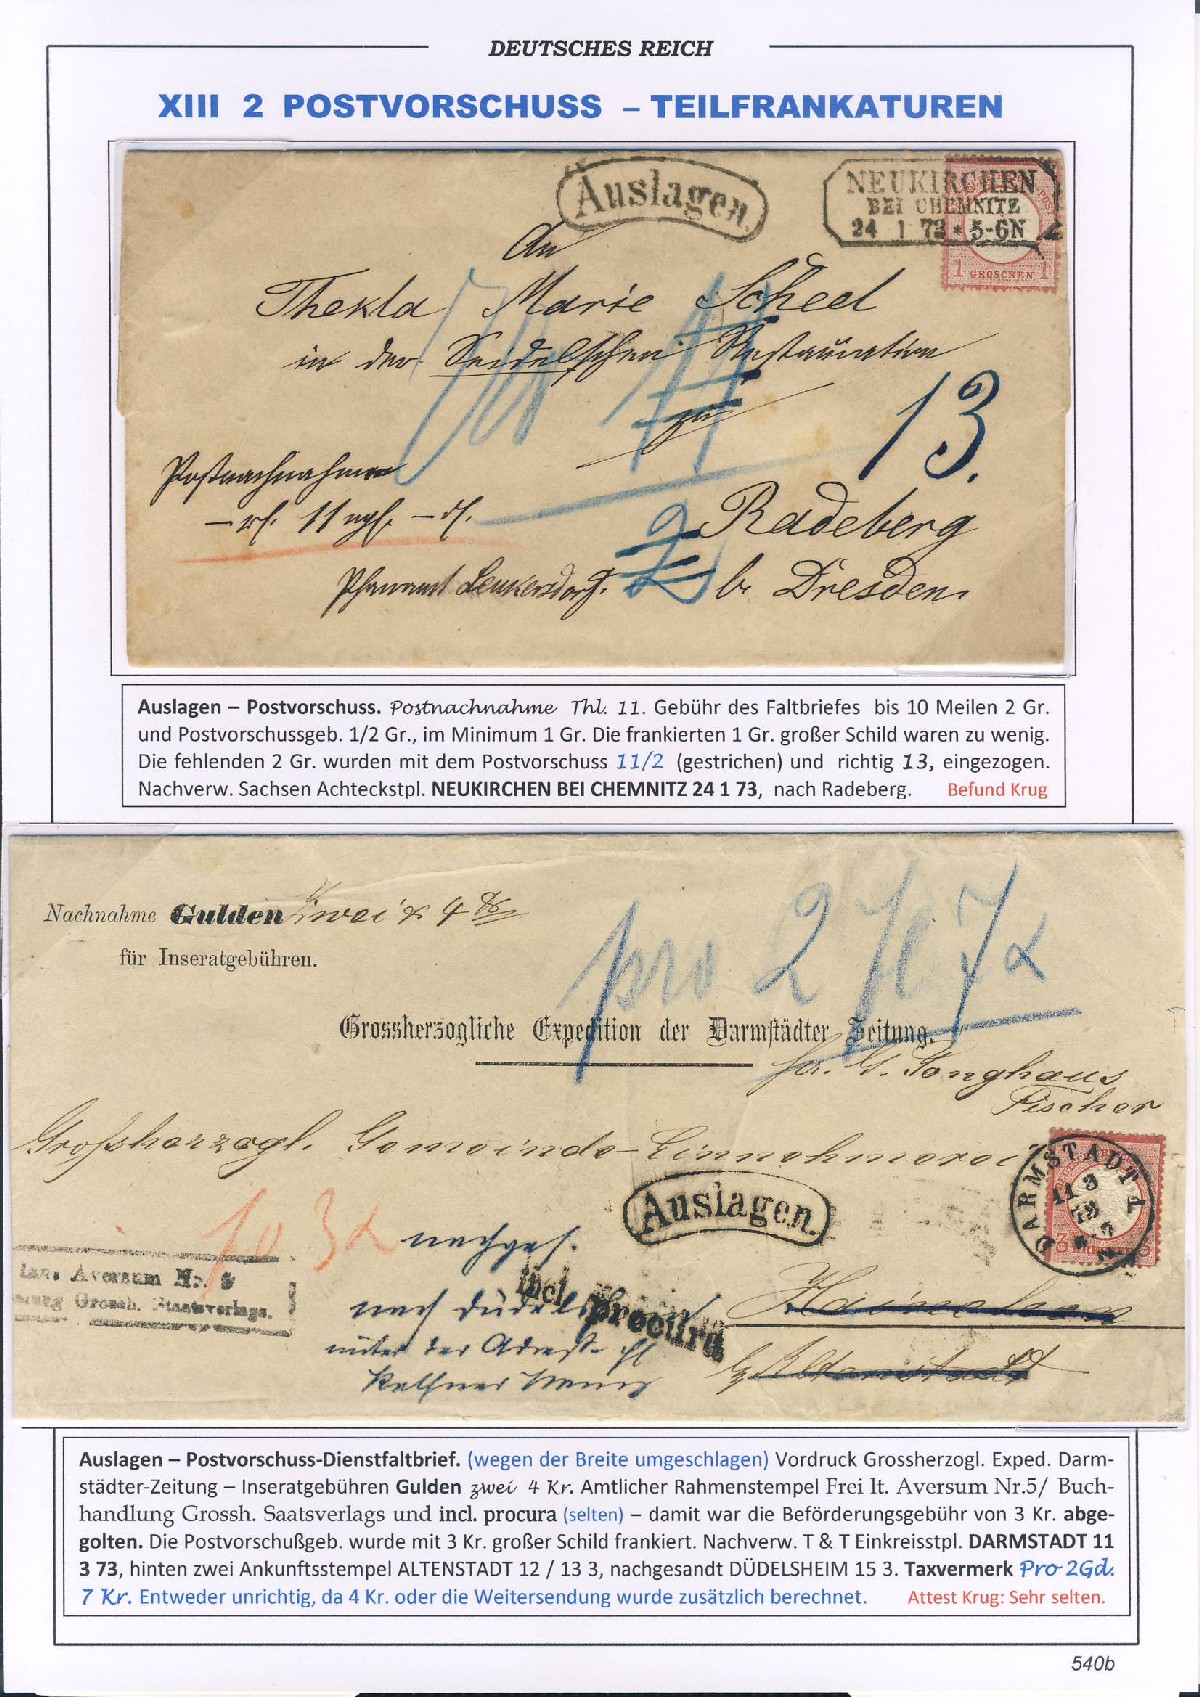 DEUTSCHES REICH
XIII 2 POSTVORSCHUSS – TEILFRANKATUREN
Auslagen.
NEUKIRCHEN
BEI CHEMNITZ
24 1 73 * 5-6N
1 GROSCHEN 1
An
Thekla Marie Scheel
in der Seidelschen Restauration
zu
13.
Postnachnahme
11 ngl.
Radeberg
Pfarramt Leukersdorf.
b. Dresden.
Auslagen – Postvorschuss. Postnachnahme Thl. 11. Gebühr des Faltbriefes bis 10 Meilen 2 Gr.
und Postvorschussgeb. 1/2 Gr., im Minimum 1 Gr. Die frankierten 1 Gr. großer Schild waren zu wenig.
Die fehlenden 2 Gr. wurden mit dem Postvorschuss 11/2 (gestrichen) und richtig 13, eingezogen.
Nachverw. Sachsen Achteckstpl. NEUKIRCHEN BEI CHEMNITZ 24 1 73, nach Radeberg. Befund Krug
Nachnahme Gulden Zwei & 4
für Inseratgebühren.
pro 2 fl 7
Grossherzogliche Expedition der Darmstädter Zeitung.
Fischer
Großherzogl. Gemeinde-Einnehmerei
DARMSTADT
11 3
73
Auslagen.
nachges.
Aversum No. 5
Grossh. Staatsverlags.
incl. procura
nach Düdelsheim
unter der Adresse
Altenstadt
Auslagen – Postvorschuss-Dienstfaltbrief. (wegen der Breite umgeschlagen) Vordruck Grossherzogl. Exped. Darm-
städter-Zeitung – Inseratgebühren Gulden zwei 4 Kr. Amtlicher Rahmenstempel Frei lt. Aversum Nr.5/ Buch-
handlung Grossh. Saatsverlags und incl. procura (selten) – damit war die Beförderungsgebühr von 3 Kr. abge-
golten. Die Postvorschußgeb. wurde mit 3 Kr. großer Schild frankiert. Nachverw. T & T Einkreisstpl. DARMSTADT 11
3 73, hinten zwei Ankunftsstempel ALTENSTADT 12 / 13 3, nachgesandt DÜDELSHEIM 15 3. Taxvermerk Pro 2Gd.
7 Kr. Entweder unrichtig, da 4 Kr. oder die Weitersendung wurde zusätzlich berechnet. Attest Krug: Sehr selten.
540b